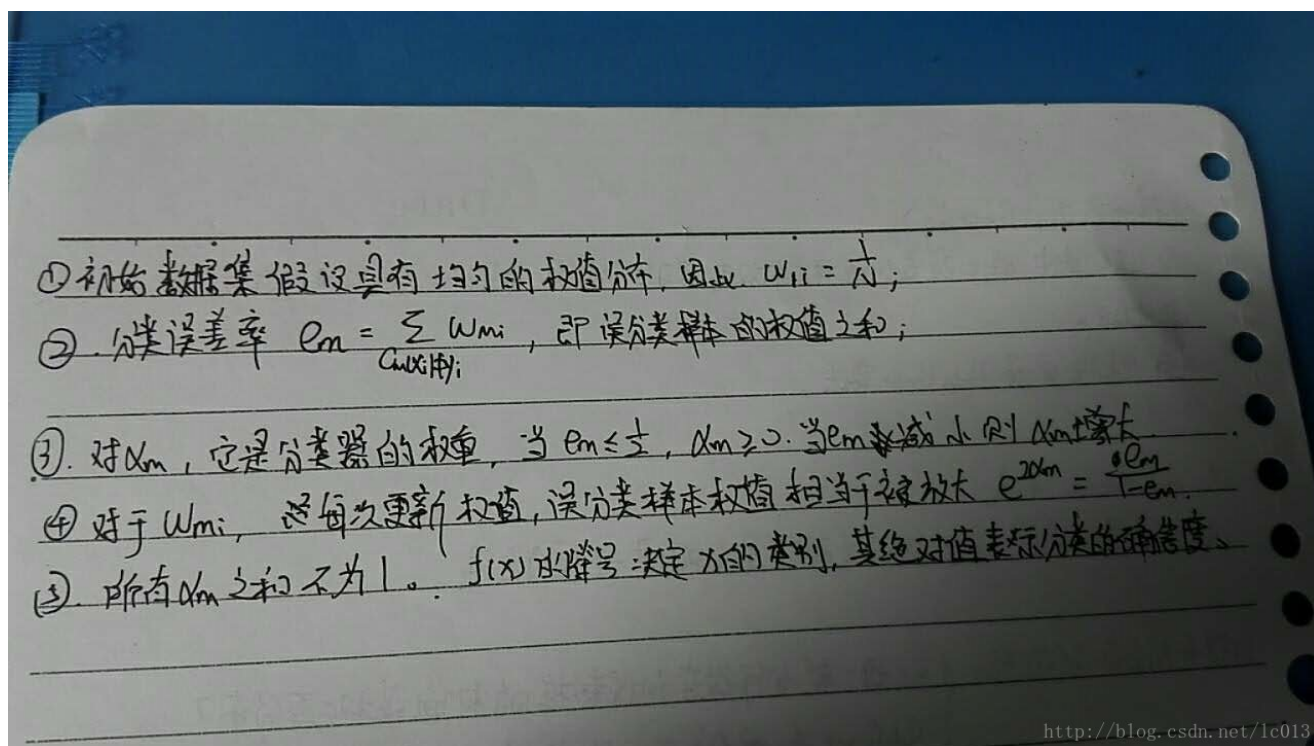 ①初始数据集假设具有均匀的权值分布,因此 w₁ᵢ = 1/N;
②. 分类误差率 eₘ = Σ wₘᵢ , 即误分类样本的权值之和;
Gₘ(xᵢ)≠yᵢ
③. 对αₘ, 它是分类器的权重, 当 eₘ ≤ 1/2, αₘ ≥ 0. 当eₘ减小则αₘ增大
④ 对于 wₘᵢ, 每次更新权值, 误分类样本权值相当于被放大 e^{2αₘ} = eₘ/(1-eₘ).
⑤. 所有αₘ之和不为1。 f(x)的符号决定x的类别, 其绝对值表示分类的确信度、
http://blog.csdn.net/lc013